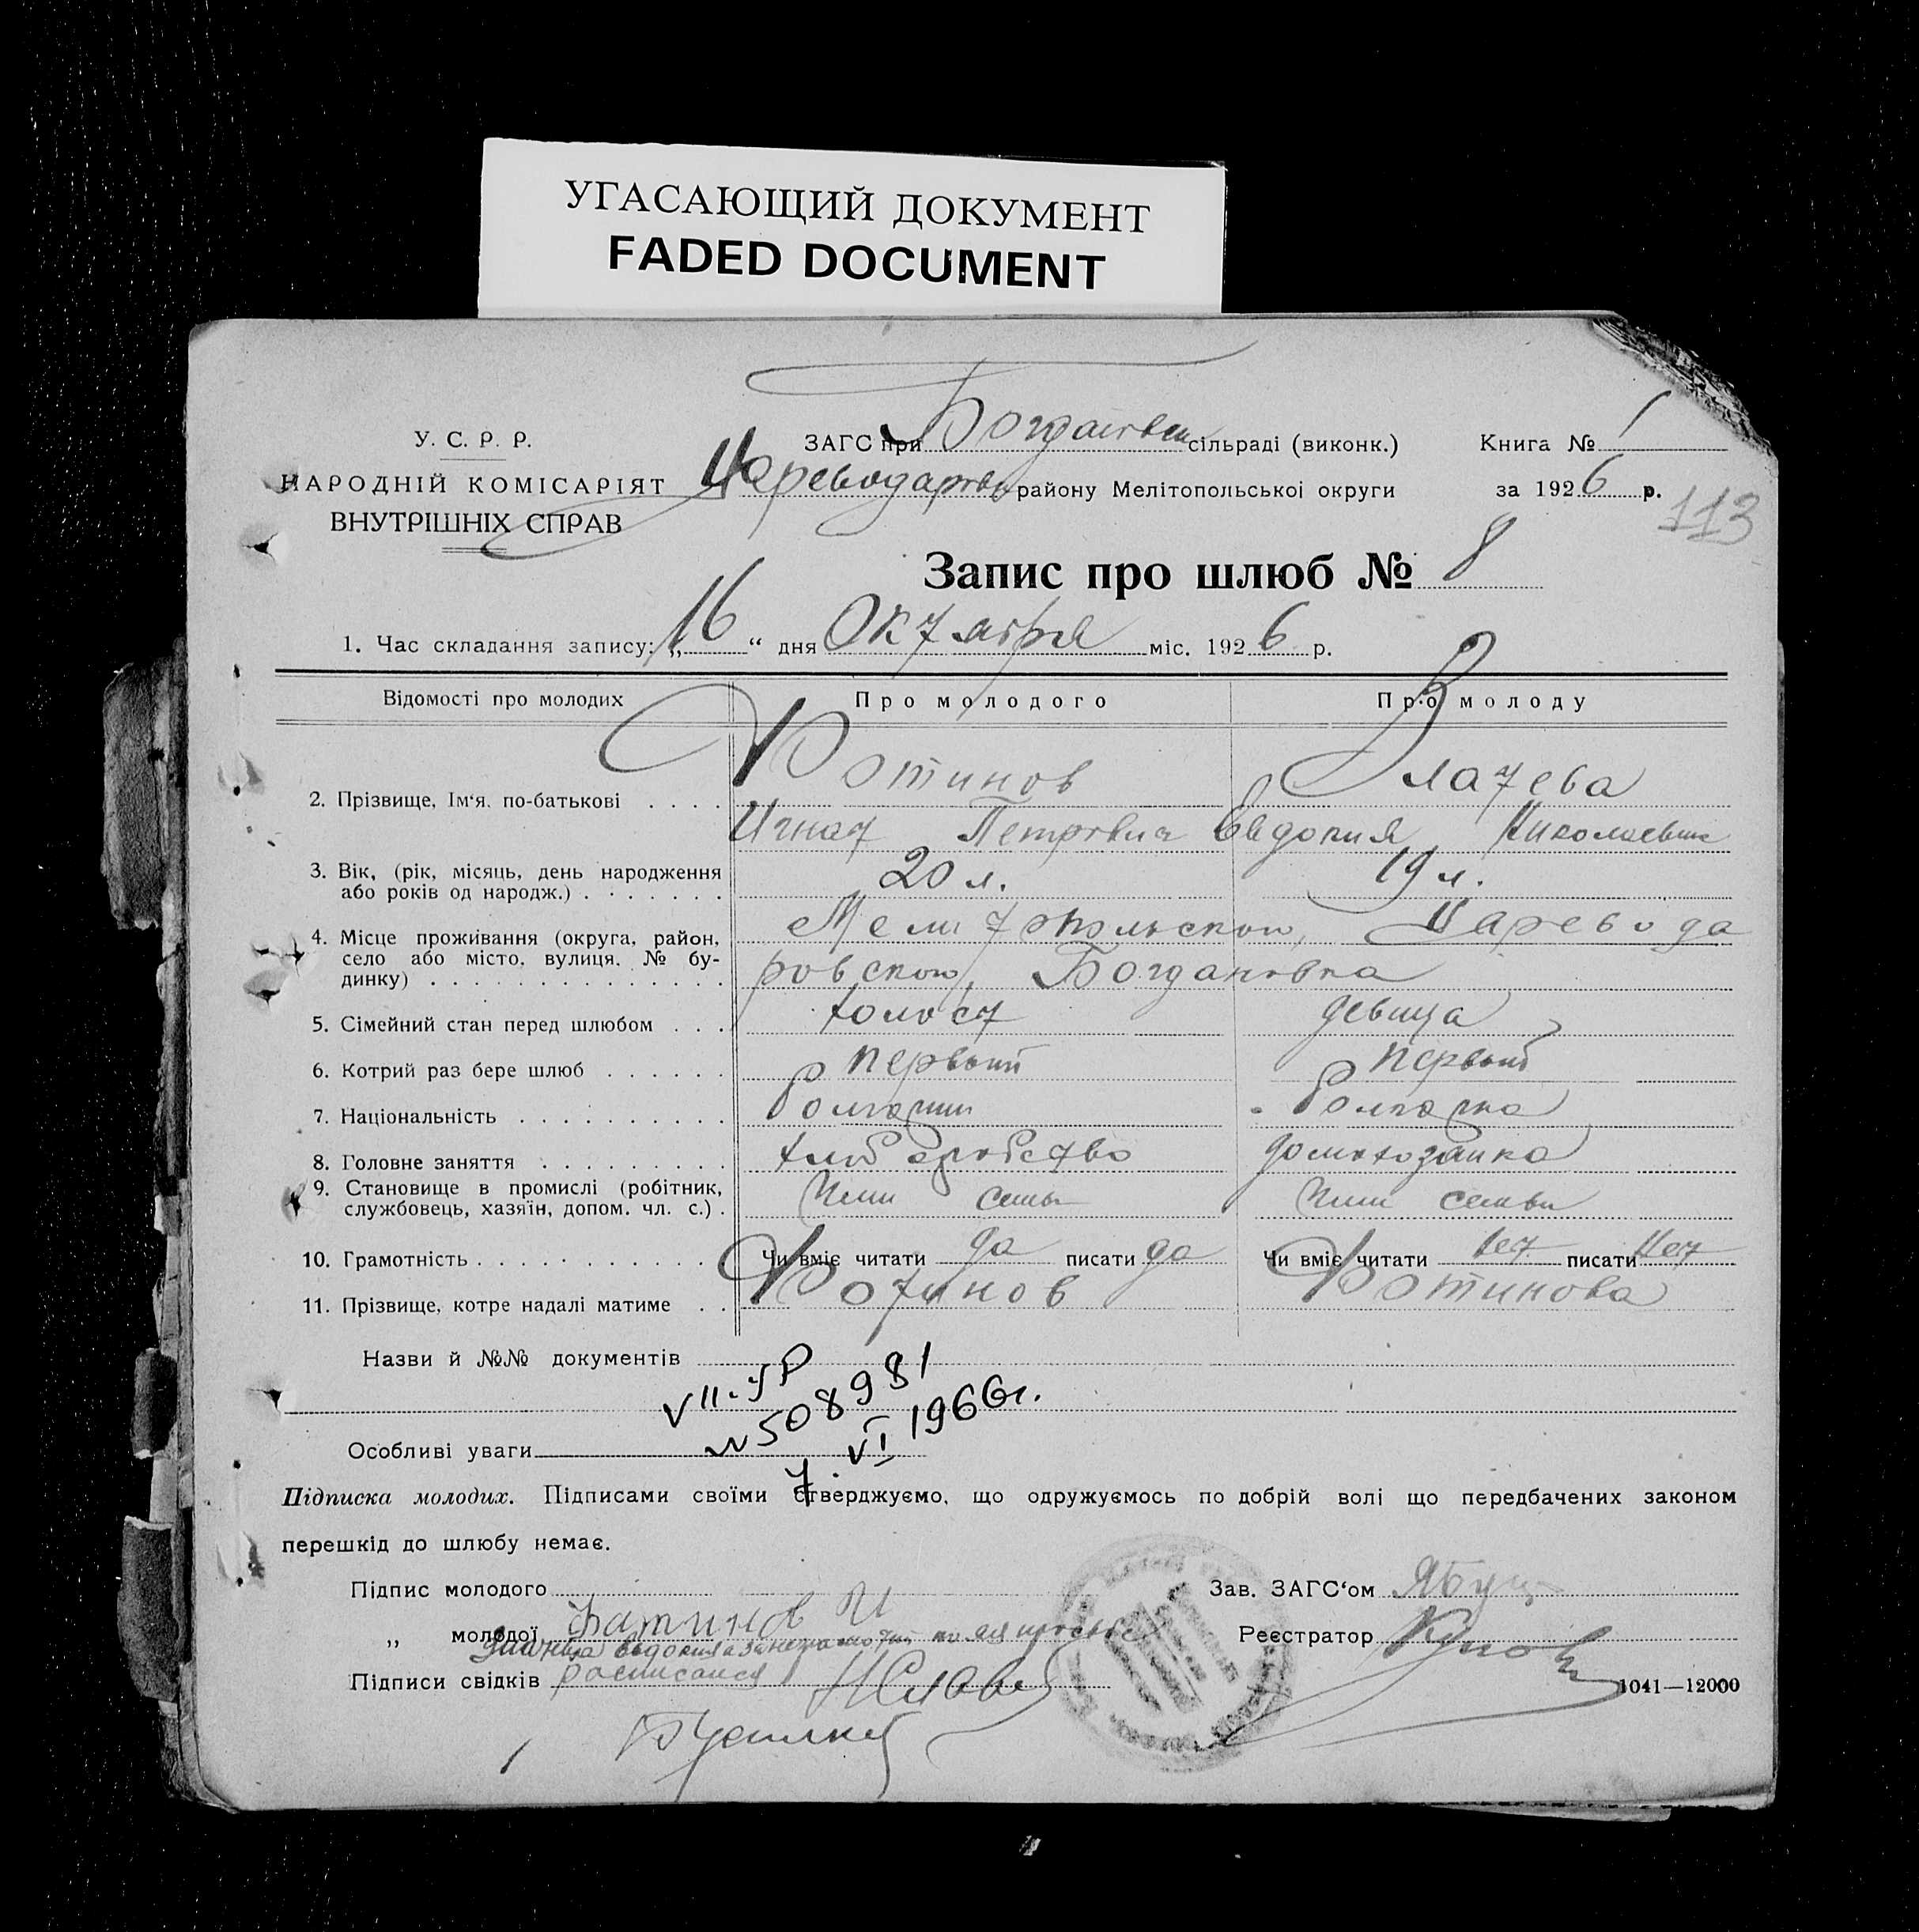 УГАСАЮЩИЙ ДОКУМЕНТ
FADED DOCUMENT
У. С. Р. Р.
НАРОДНІЙ КОМІСАРІЯТ
ВНУТРІШНІХ СПРАВ
ЗАГС при Богдановск сільраді (виконк.) Книга № 1
Цареводаровск району Мелітопольської округи за 1926 р.
113
Запис про шлюб № 8
1. Час складання запису: „16“ дня Октября міс. 1926 р.
Відомості про молодих Про молодого Про молоду
2. Прізвище, Ім‘я, по-батькові . . . . Фотинов Златева
Игнат Петрович Евдокия Николаевна
3. Вік, (рік, місяць, день народження 20 л. 19 л.
або років од народж.) . . . . . . .
4. Місце проживання (округа, район, Мелитопольской, Царевода
село або місто, вулиця, № бу-
динку) . . . . . . . . . . . . . . ровской, Богдановка
5. Сімейний стан перед шлюбом . . . холост девица
6. Котрий раз бере шлюб . . . . . . первый первый
7. Національність . . . . . . . . . . болгарин болгарка
8. Головне заняття . . . . . . . . . хлеборобство домохозяйка
9. Становище в промислі (робітник, Член семьи Член семьи
службовець, хазяїн, допом. чл. с.) .
10. Грамотність . . . . . . . . . . . Чи вміє читати да писати да Чи вміє читати нет писати нет
11. Прізвище, котре надалі матиме . . Фотинов Фотинова
Назви й №№ документів
VII-УР
№508981
7. VI 1966г.
Особливі уваги
Підписка молодих. Підписами своїми стверджуємо, що одружуємось по добрій волі що передбачених законом
перешкід до шлюбу немає.
Підпис молодого Зав. ЗАГС‘ом
Фатинов И
„ молодої Реєстратор
Златева Евдокия а за неграмотной по ея просьбе
Підписи свідків расписался
1041—12000